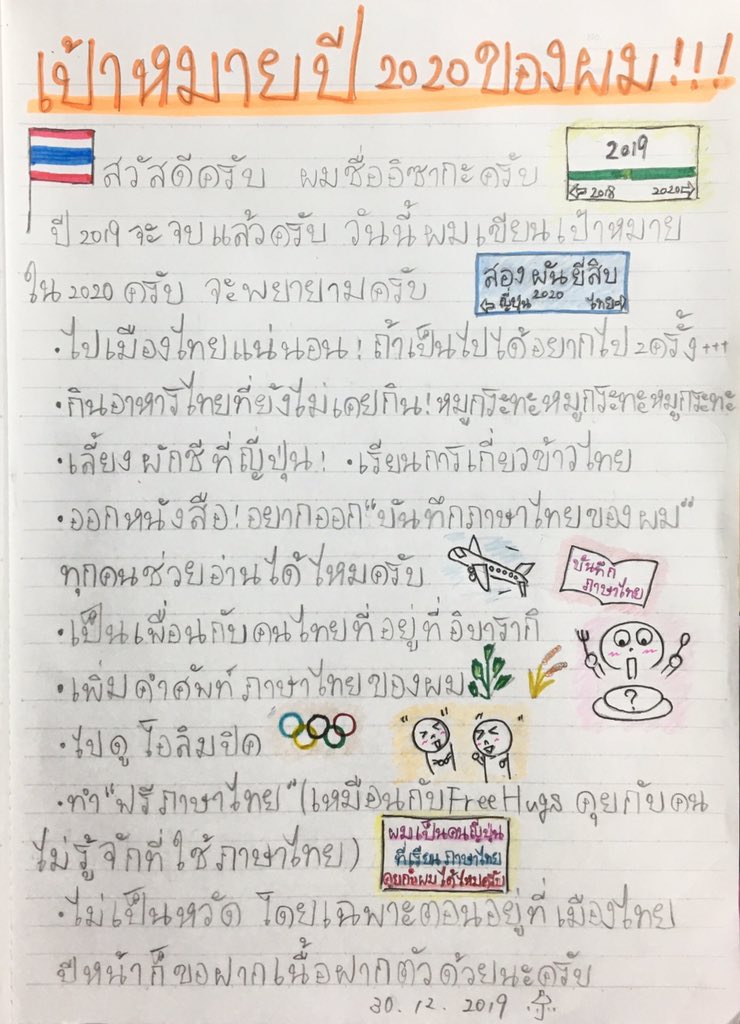 เป้าหมายปี 2020 ของผม!!!
2019
←2018 2020→
สวัสดีครับ ผมชื่ออิซากะครับ
ปี 2019 จะจบแล้วครับ วันนี้ผมเขียนเป้าหมาย
ใน 2020 ครับ จะพยายามครับ
สองพันยี่สิบ
←ญี่ปุ่น 2020 ไทย→
・ไปเมืองไทยแน่นอน! ถ้าเป็นไปได้อยากไป 2 ครั้ง+++
・กินอาหารไทยที่ยังไม่เคยกิน! หมูกระทะหมูกระทะหมูกระทะ
・เลี้ยงผักชีที่ญี่ปุ่น! ・เรียนการเกี่ยวข้าวไทย
・ออกหนังสือ! อยากออก"บันทึกภาษาไทยของผม"
ทุกคนช่วยอ่านได้ไหมครับ
บันทึก
ภาษาไทย
・เป็นเพื่อนกับคนไทยที่อยู่ที่อิบารากิ
・เพิ่มคำศัพท์ภาษาไทยของผม
?
・ไปดูโอลิมปิค
・ทำ"ฟรีภาษาไทย"(เหมือนกับFree Hugs คุยกับคน
ไม่รู้จักที่ใช้ภาษาไทย)
ผมเป็นคนญี่ปุ่น
ที่เรียนภาษาไทย
คุยกับผมได้ไหมครับ
・ไม่เป็นหวัด โดยเฉพาะตอนอยู่ที่เมืองไทย
ปีหน้าก็ขอฝากเนื้อฝากตัวด้วยนะครับ
30.12.2019